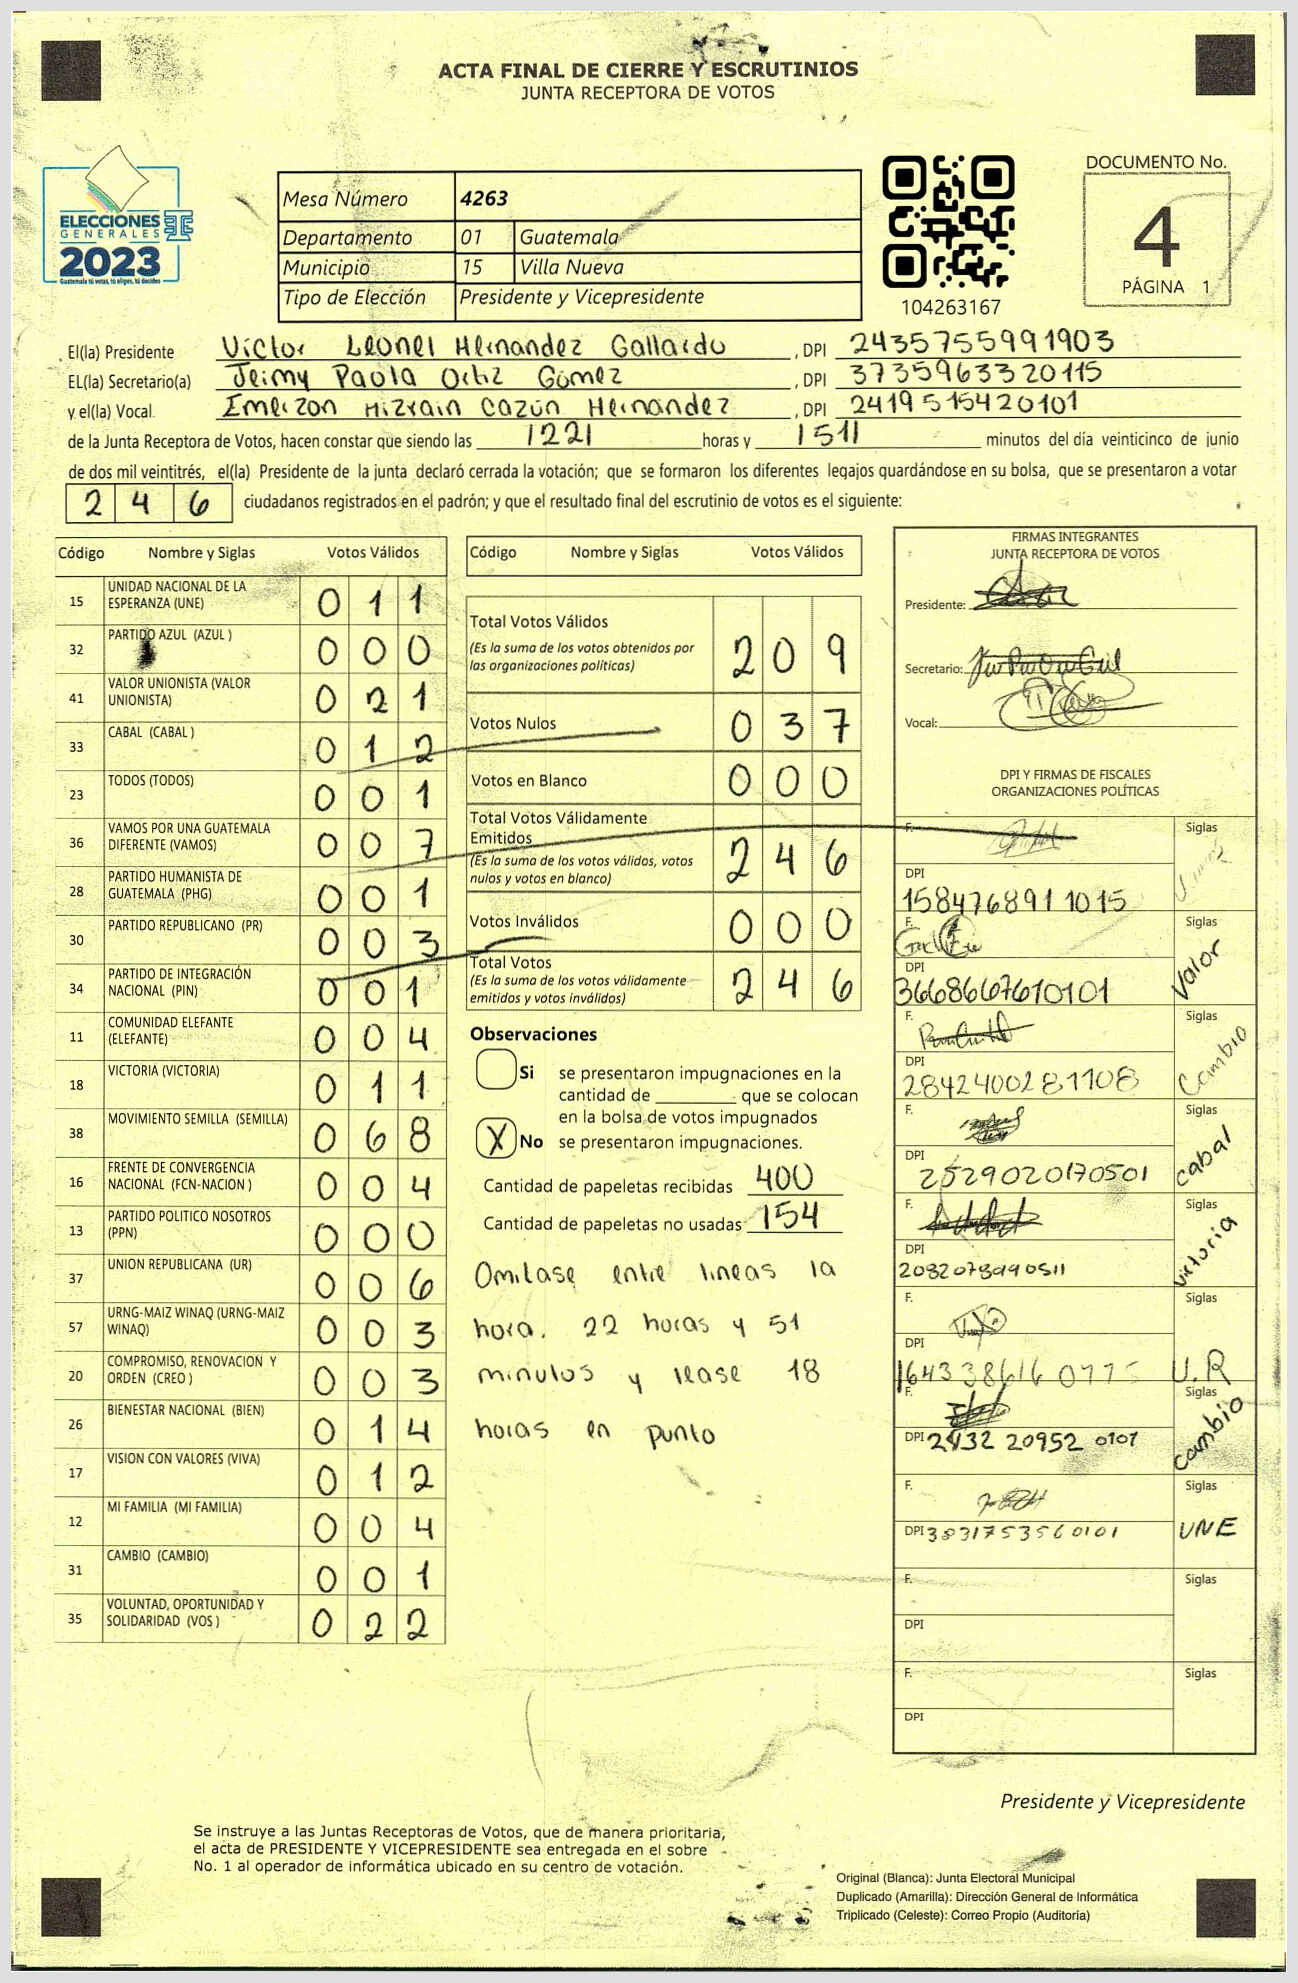 ACTA FINAL DE CIERRE Y ESCRUTINIOS
JUNTA RECEPTORA DE VOTOS
ELECCIONES
GENERALES
2023
Guatemala tú votas, tú eliges, tú decides
Mesa Número 4263
Departamento 01 Guatemala
Municipio 15 Villa Nueva
Tipo de Elección Presidente y Vicepresidente
104263167
DOCUMENTO No.
4
PÁGINA 1
El(la) Presidente Victor Leonel Hernandez Gallardo , DPI 2435755991903
EL(la) Secretario(a) Jeimy Paola Ortiz Gómez , DPI 3735963320115
y el(la) Vocal. Emerzon Mizrain Cazún Hernández , DPI 2419515420101
de la Junta Receptora de Votos, hacen constar que siendo las 1221 horas y 1511 minutos del día veinticinco de junio
de dos mil veintitrés, el(la) Presidente de la junta declaró cerrada la votación; que se formaron los diferentes legajos guardándose en su bolsa, que se presentaron a votar
2 4 6 ciudadanos registrados en el padrón; y que el resultado final del escrutinio de votos es el siguiente:
Código Nombre y Siglas Votos Válidos
15 UNIDAD NACIONAL DE LA ESPERANZA (UNE) 0 1 1
32 PARTIDO AZUL (AZUL ) 0 0 0
41 VALOR UNIONISTA (VALOR UNIONISTA) 0 2 1
33 CABAL (CABAL ) 0 1 2
23 TODOS (TODOS) 0 0 1
36 VAMOS POR UNA GUATEMALA DIFERENTE (VAMOS) 0 0 7
28 PARTIDO HUMANISTA DE GUATEMALA (PHG) 0 0 1
30 PARTIDO REPUBLICANO (PR) 0 0 3
34 PARTIDO DE INTEGRACIÓN NACIONAL (PIN) 0 0 1
11 COMUNIDAD ELEFANTE (ELEFANTE) 0 0 4
18 VICTORIA (VICTORIA) 0 1 1
38 MOVIMIENTO SEMILLA (SEMILLA) 0 6 8
16 FRENTE DE CONVERGENCIA NACIONAL (FCN-NACION ) 0 0 4
13 PARTIDO POLITICO NOSOTROS (PPN) 0 0 0
37 UNION REPUBLICANA (UR) 0 0 6
57 URNG-MAIZ WINAQ (URNG-MAIZ WINAQ) 0 0 3
20 COMPROMISO, RENOVACION Y ORDEN (CREO ) 0 0 3
26 BIENESTAR NACIONAL (BIEN) 0 1 4
17 VISION CON VALORES (VIVA) 0 1 2
12 MI FAMILIA (MI FAMILIA) 0 0 4
31 CAMBIO (CAMBIO) 0 0 1
35 VOLUNTAD, OPORTUNIDAD Y SOLIDARIDAD (VOS ) 0 2 2
Código Nombre y Siglas Votos Válidos
Total Votos Válidos 2 0 9
(Es la suma de los votos obtenidos por
las organizaciones políticas)
Votos Nulos 0 3 7
Votos en Blanco 0 0 0
Total Votos Válidamente
Emitidos 2 4 6
(Es la suma de los votos válidos, votos
nulos y votos en blanco)
Votos Inválidos 0 0 0
Total Votos 2 4 6
(Es la suma de los votos válidamente
emitidos y votos inválidos)
Observaciones
Si se presentaron impugnaciones en la
cantidad de que se colocan
en la bolsa de votos impugnados
X No se presentaron impugnaciones.
Cantidad de papeletas recibidas 400
Cantidad de papeletas no usadas 154
Omitase entre lineas la
hora. 22 horas y 51
minutos y lease 18
horas en punto
FIRMAS INTEGRANTES
JUNTA RECEPTORA DE VOTOS
Presidente:
Secretario:
Vocal:
DPI Y FIRMAS DE FISCALES
ORGANIZACIONES POLÍTICAS
F. Siglas
DPI 1584768911015
F. Siglas Valor
DPI 3668667610101
F. Siglas Cambio
DPI 2842400281108
F. Siglas Cabal
DPI 2529020170501
F. Siglas Victoria
DPI 2082078090511
F. Siglas U.R
DPI 1643386160775
F. Siglas Cambio
DPI 2432 20952 0101
F. Siglas UNE
DPI 3831753560101
F. Siglas
DPI
F. Siglas
DPI
Presidente y Vicepresidente
Se instruye a las Juntas Receptoras de Votos, que de manera prioritaria,
el acta de PRESIDENTE Y VICEPRESIDENTE sea entregada en el sobre
No. 1 al operador de informática ubicado en su centro de votación.
Original (Blanca): Junta Electoral Municipal
Duplicado (Amarilla): Dirección General de Informática
Triplicado (Celeste): Correo Propio (Auditoría)